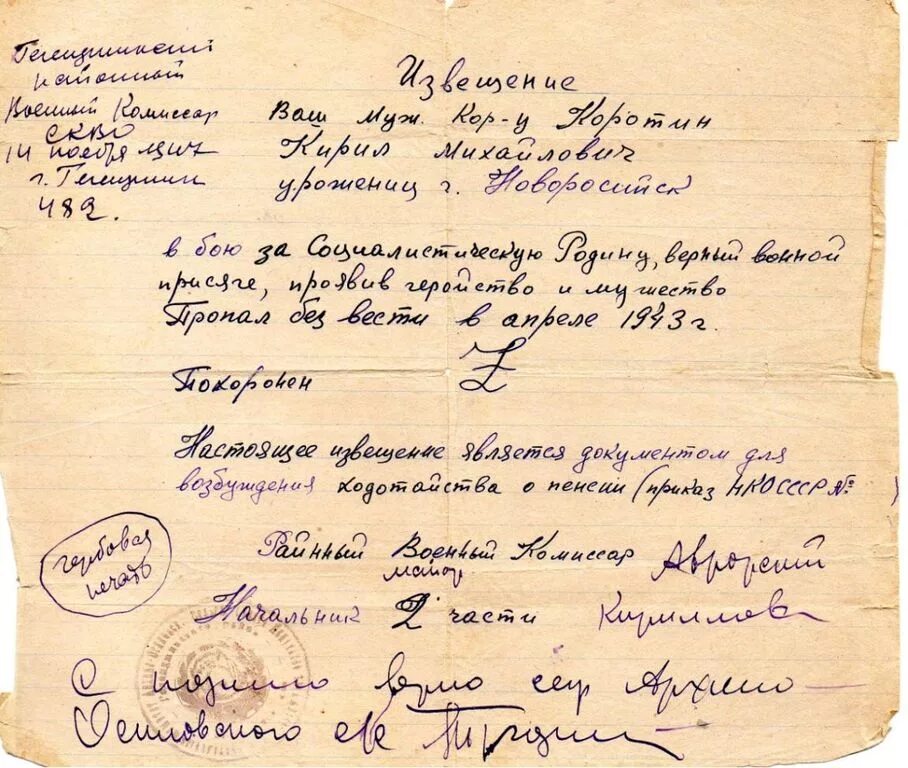 районный
Военный Комиссар
СКВО
14 ноября 1947
482.
Извещение
Ваш муж. Кор-у Коротин
Кирил Михайлович
урожениц г. Новоросийск
в бою за Социалистическую Родину, верный военной
присяге, проявив геройство и мужество
Пропал без вести в апреле 1943 г.
Похоронен Z
Настоящее извещение является документом для
возбуждения ходотайства о пенсии (приказ НКОСССР № )
гербовая
печать
Райнный Военный Комиссар
майор
Начальник 2 части Кириллова
С верно сек Архипо-
Осиповского